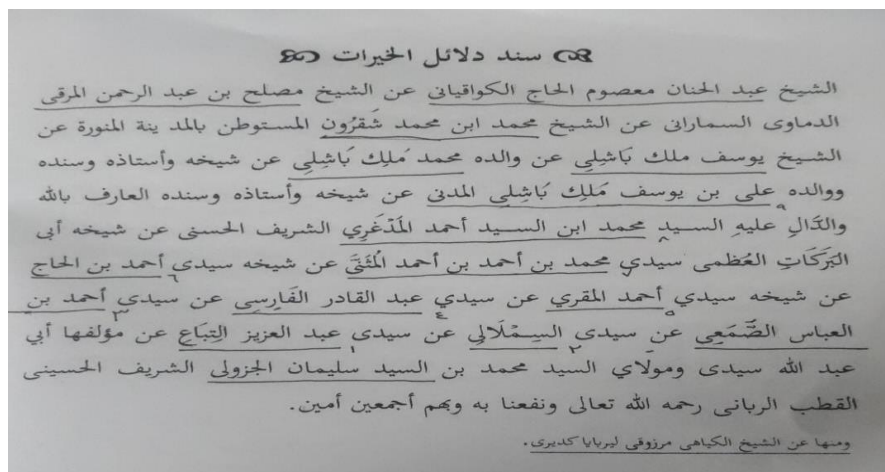 سند دلائل الخيرات
الشيخ عبد الحنان معصوم الحاج الكواقياني عن الشيخ مصلح بن عبد الرحمن المرقي
الدماوى السماراني عن الشيخ محمد ابن محمد شَقرُون المستوطن بالمد ينة المنورة عن
الشيخ يوسف ملك بَاشِلِي عن والده محمد مَلِك بَاشِلِي عن شيخه وأستاذه وسنده
ووالده على بن يوسف مَلِك بَاشِلِي المدنى عن شيخه وأستاذه وسنده العارف بالله
والدَّال عليهِ السيد محمد ابن السيد أحمد المَدْغَرِي الشريف الحسنى عن شيخه أبى
البَرَكَاتِ العُظمى سيدي محمد بن أحمد بن أحمد المُثَنَّى عن شيخه سيدي أحمد بن الحاج
عن شيخه سيدي أحمد المقري عن سيدي عبد القادر الفَارِسِى عن سيدي أحمد بن
العباس الصَّمَعِي عن سيدى السِمْلَالِي عن سيدى عبد العزيز التِبَاعِ عن مؤلفها أبي
عبد الله سيدى ومولَاي السيد محمد بن السيد سليمان الجزولى الشريف الحسينى
القطب الربانى رحمه الله تعالى ونفعنا به وبهم أجمعين أمين.
ومنها عن الشيخ الكياهى مرزوقى ليربايا كديرى.